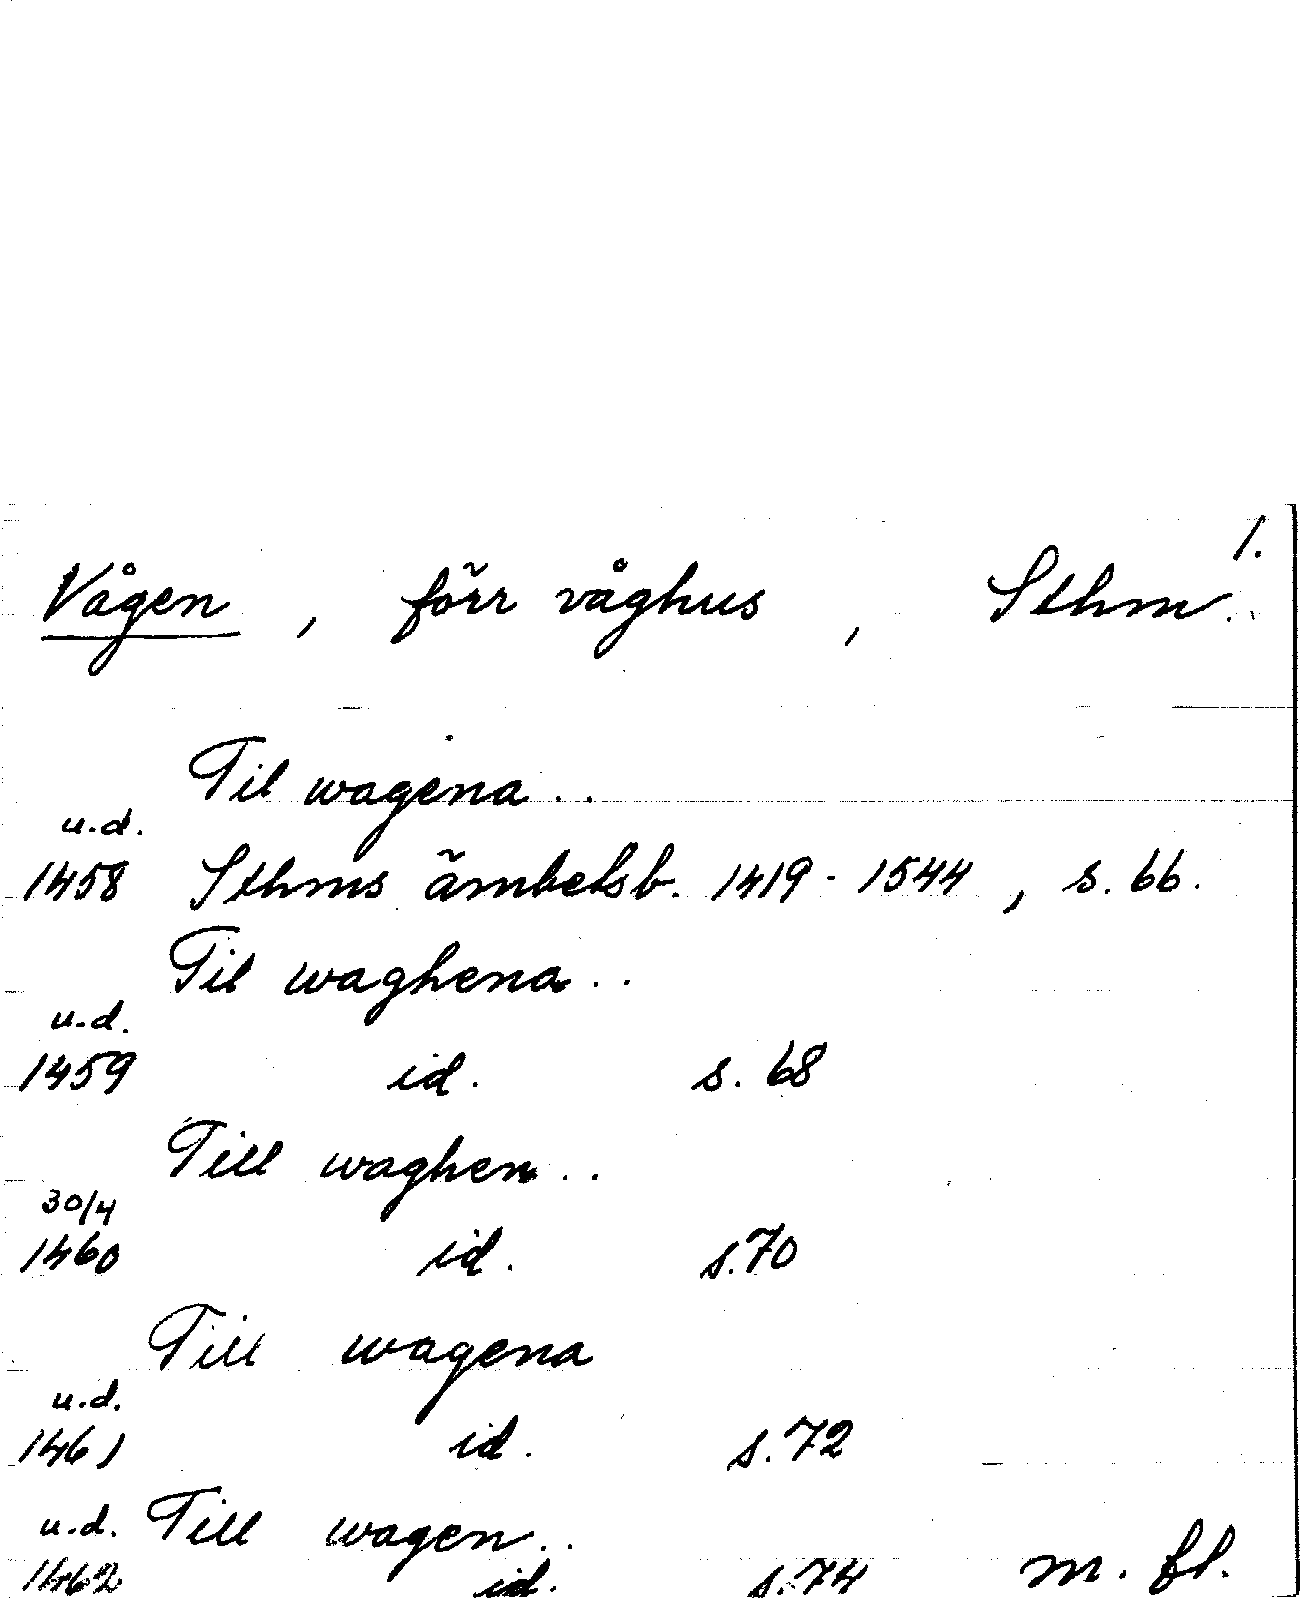 1.
Vågen, förr våghus, Sthm.
Til wagena..
u.d.
1458 Sthms ämbetsb. 1419-1544, s. 66.
Til waghena..
u.d.
1459 id. s. 68
Till waghen..
30/4
1460 id. s. 70
Till wagena
u.d.
1461 id. s. 72
u.d. Till wagen..
1462 id. s. 74 m. fl.